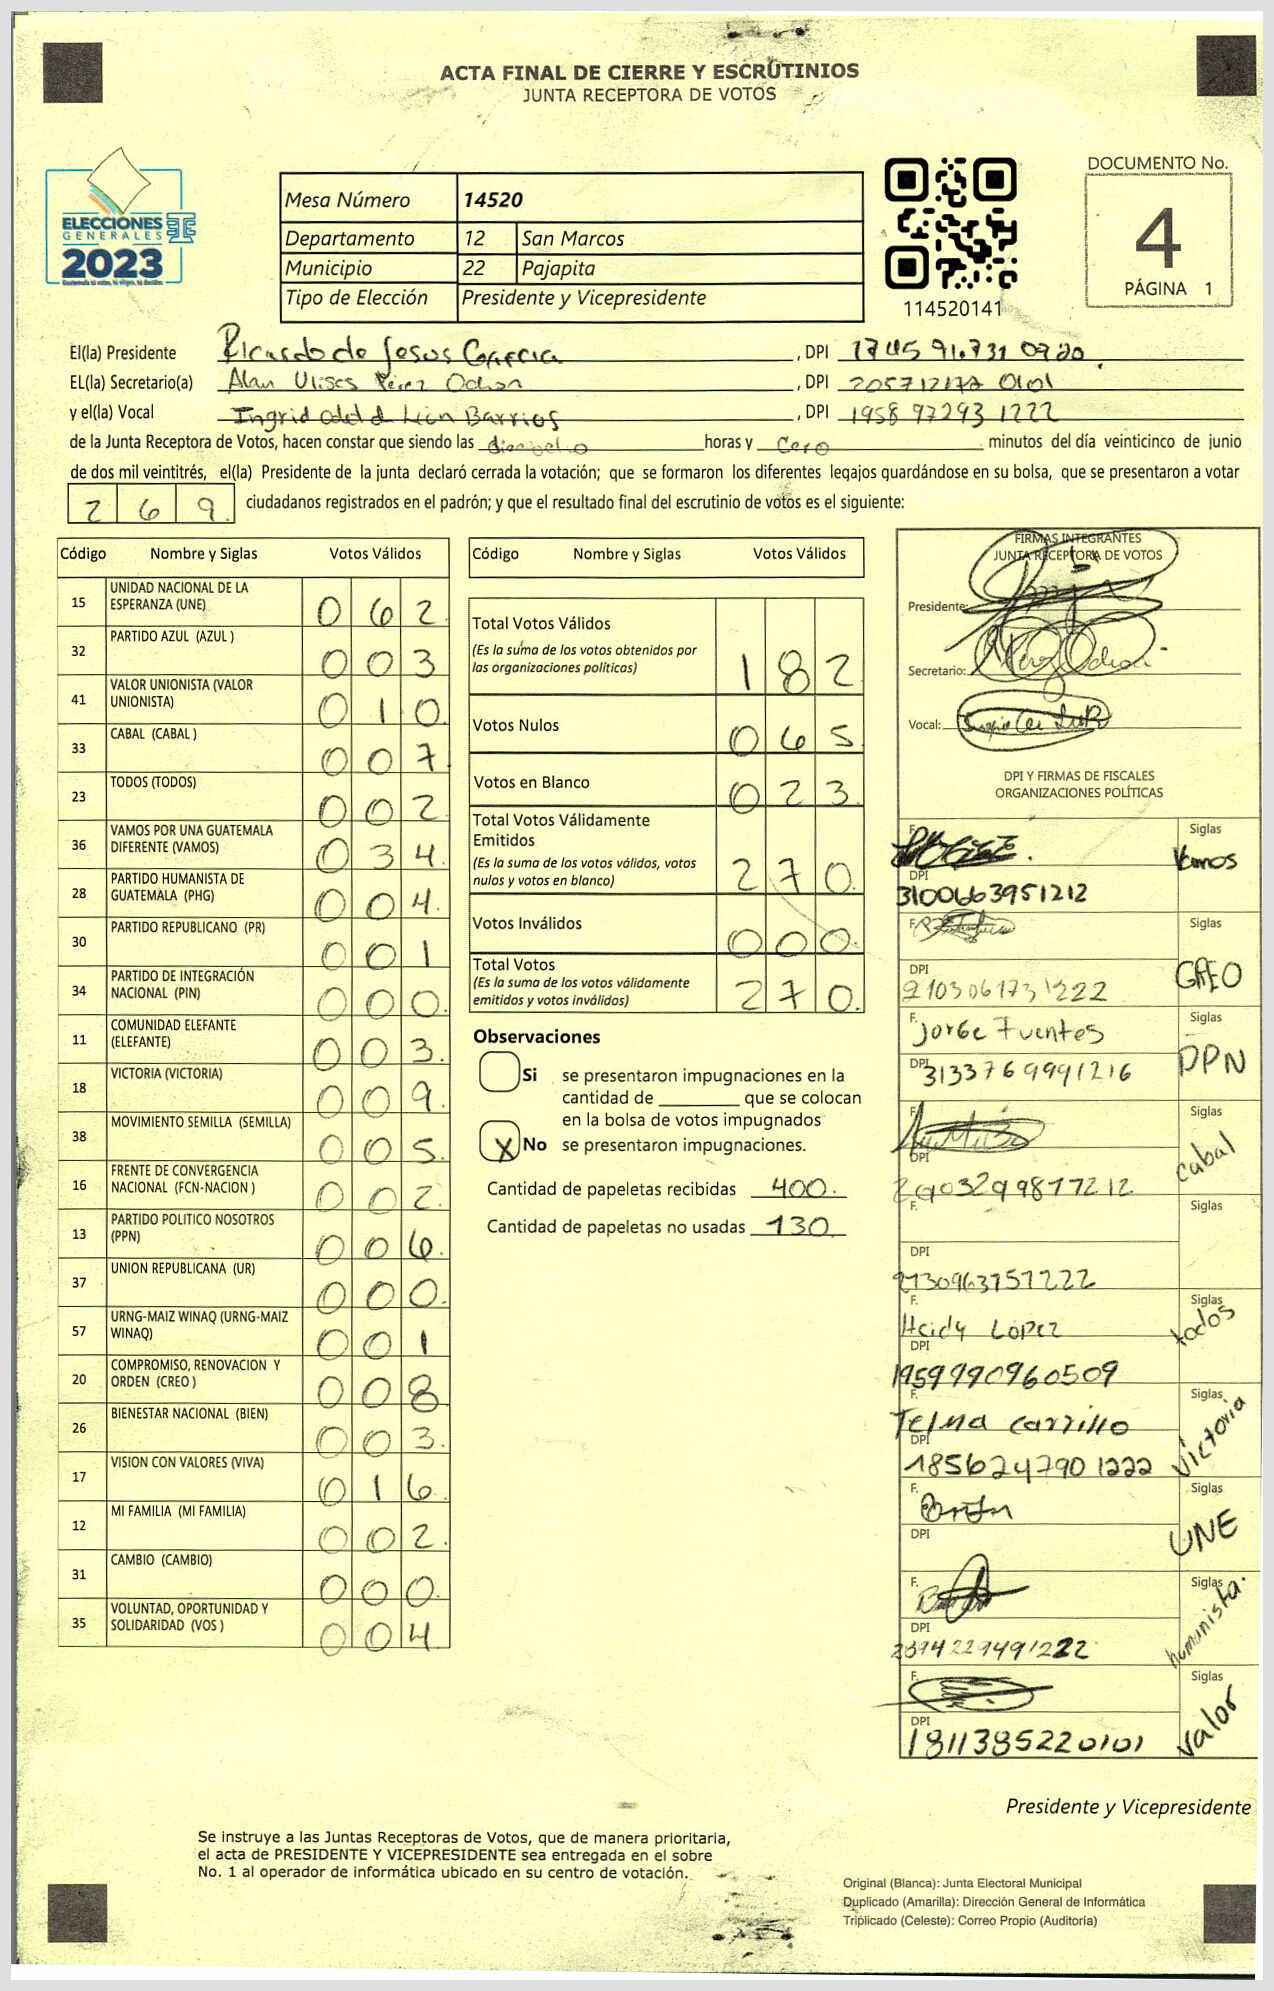 ACTA FINAL DE CIERRE Y ESCRUTINIOS
JUNTA RECEPTORA DE VOTOS
ELECCIONES
GENERALES
2023
Mesa Número 14520
Departamento 12 San Marcos
Municipio 22 Pajapita
Tipo de Elección Presidente y Vicepresidente
114520141
DOCUMENTO No.
4
PÁGINA 1
El(la) Presidente Ricardo de Jesus Garcia , DPI
EL(la) Secretario(a) Alan Ulises Pérez Ochoa , DPI 205712172 0101
y el(la) Vocal Ingrid Odel d León Barrios , DPI 1958 97293 1222
de la Junta Receptora de Votos, hacen constar que siendo las dieciocho horas y cero minutos del día veinticinco de junio
de dos mil veintitrés, el(la) Presidente de la junta declaró cerrada la votación; que se formaron los diferentes legajos guardándose en su bolsa, que se presentaron a votar
2 6 9. ciudadanos registrados en el padrón; y que el resultado final del escrutinio de votos es el siguiente:
Código Nombre y Siglas Votos Válidos
15 UNIDAD NACIONAL DE LA
ESPERANZA (UNE) 0 6 2
32 PARTIDO AZUL (AZUL ) 0 0 3
41 VALOR UNIONISTA (VALOR
UNIONISTA) 0 1 0.
33 CABAL (CABAL ) 0 0 7
23 TODOS (TODOS) 0 0 2
36 VAMOS POR UNA GUATEMALA
DIFERENTE (VAMOS) 0 3 4
28 PARTIDO HUMANISTA DE
GUATEMALA (PHG) 0 0 4.
30 PARTIDO REPUBLICANO (PR) 0 0 1
34 PARTIDO DE INTEGRACIÓN
NACIONAL (PIN) 0 0 0.
11 COMUNIDAD ELEFANTE
(ELEFANTE) 0 0 3.
18 VICTORIA (VICTORIA) 0 0 9.
38 MOVIMIENTO SEMILLA (SEMILLA) 0 0 5.
16 FRENTE DE CONVERGENCIA
NACIONAL (FCN-NACION ) 0 0 2.
13 PARTIDO POLITICO NOSOTROS
(PPN) 0 0 6.
37 UNION REPUBLICANA (UR) 0 0 0.
57 URNG-MAIZ WINAQ (URNG-MAIZ
WINAQ) 0 0 1
20 COMPROMISO, RENOVACION Y
ORDEN (CREO ) 0 0 8
26 BIENESTAR NACIONAL (BIEN) 0 0 3.
17 VISION CON VALORES (VIVA) 0 1 6.
12 MI FAMILIA (MI FAMILIA) 0 0 2.
31 CAMBIO (CAMBIO) 0 0 0.
35 VOLUNTAD, OPORTUNIDAD Y
SOLIDARIDAD (VOS ) 0 0 4
Código Nombre y Siglas Votos Válidos
Total Votos Válidos
(Es la suma de los votos obtenidos por
las organizaciones políticas) 1 8 2
Votos Nulos 0 6 5.
Votos en Blanco 0 2 3.
Total Votos Válidamente
Emitidos
(Es la suma de los votos válidos, votos
nulos y votos en blanco) 2 7 0.
Votos Inválidos 0 0 0.
Total Votos
(Es la suma de los votos válidamente
emitidos y votos inválidos) 2 7 0.
Observaciones
Si se presentaron impugnaciones en la
cantidad de ________ que se colocan
en la bolsa de votos impugnados
X No se presentaron impugnaciones.
Cantidad de papeletas recibidas 400.
Cantidad de papeletas no usadas 130
FIRMAS INTEGRANTES
JUNTA RECEPTORA DE VOTOS
Presidente:
Secretario:
Vocal:
DPI Y FIRMAS DE FISCALES
ORGANIZACIONES POLÍTICAS
F. Siglas
Vamos
DPI
3100663951212
F. Siglas
DPI
2103061731222
F. Jorge Fuentes Siglas
PPN
DPI 3133769991216
F. Siglas
cabal
DPI
2903299871212
F. Siglas
DPI
2730963751222
F. Siglas
Heidy López todos
DPI
1959990960509
F. Siglas
Telma Carrillo Victoria
DPI
1856247901222
F. Siglas
UNE
DPI
F. Siglas
humanista.
DPI
2394229491222
F. Siglas
valor
DPI
1811385220101
Presidente y Vicepresidente
Se instruye a las Juntas Receptoras de Votos, que de manera prioritaria,
el acta de PRESIDENTE Y VICEPRESIDENTE sea entregada en el sobre
No. 1 al operador de informática ubicado en su centro de votación.
Original (Blanca): Junta Electoral Municipal
Duplicado (Amarilla): Dirección General de Informática
Triplicado (Celeste): Correo Propio (Auditoría)